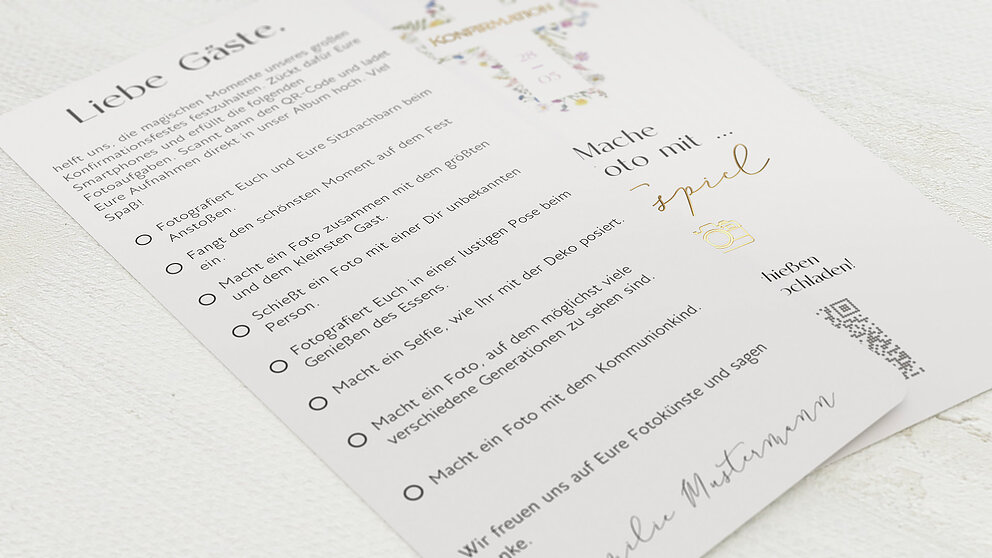 Liebe Gäste,
helft uns, die magischen Momente unseres großen
Konfirmationsfestes festzuhalten. Zückt dafür Eure
Smartphones und erfüllt die folgenden
Fotoaufgaben. Scannt dann den QR-Code und ladet
Eure Aufnahmen direkt in unser Album hoch. Viel
Spaß!
Fotografiert Euch und Eure Sitznachbarn beim
Anstoßen.
Fangt den schönsten Moment auf dem Fest
ein.
Macht ein Foto zusammen mit dem größten
und dem kleinsten Gast.
Schießt ein Foto mit einer Dir unbekannten
Person.
Fotografiert Euch in einer lustigen Pose beim
Genießen des Essens.
Macht ein Selfie, wie Ihr mit der Deko posiert.
Macht ein Foto, auf dem möglichst viele
verschiedene Generationen zu sehen sind.
Macht ein Foto mit dem Kommunionkind.
Wir freuen uns auf Eure Fotokünste und sagen
nke.
ilie Mustermann
KONFIRMATION
28
05
Mache
oto mit ...
spiel
hießen
ochladen!